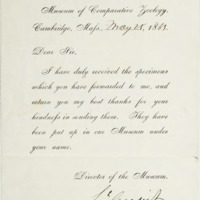 Museum of Comparative Zoology,
Cambridge, Mass., May 28, 1861.
Dear Sir,
I have duly received the specimens
which you have forwarded to me, and
return you my best thanks for your
kindness in sending them. They have
been put up in our Museum under
your name.
Director of the Museum.